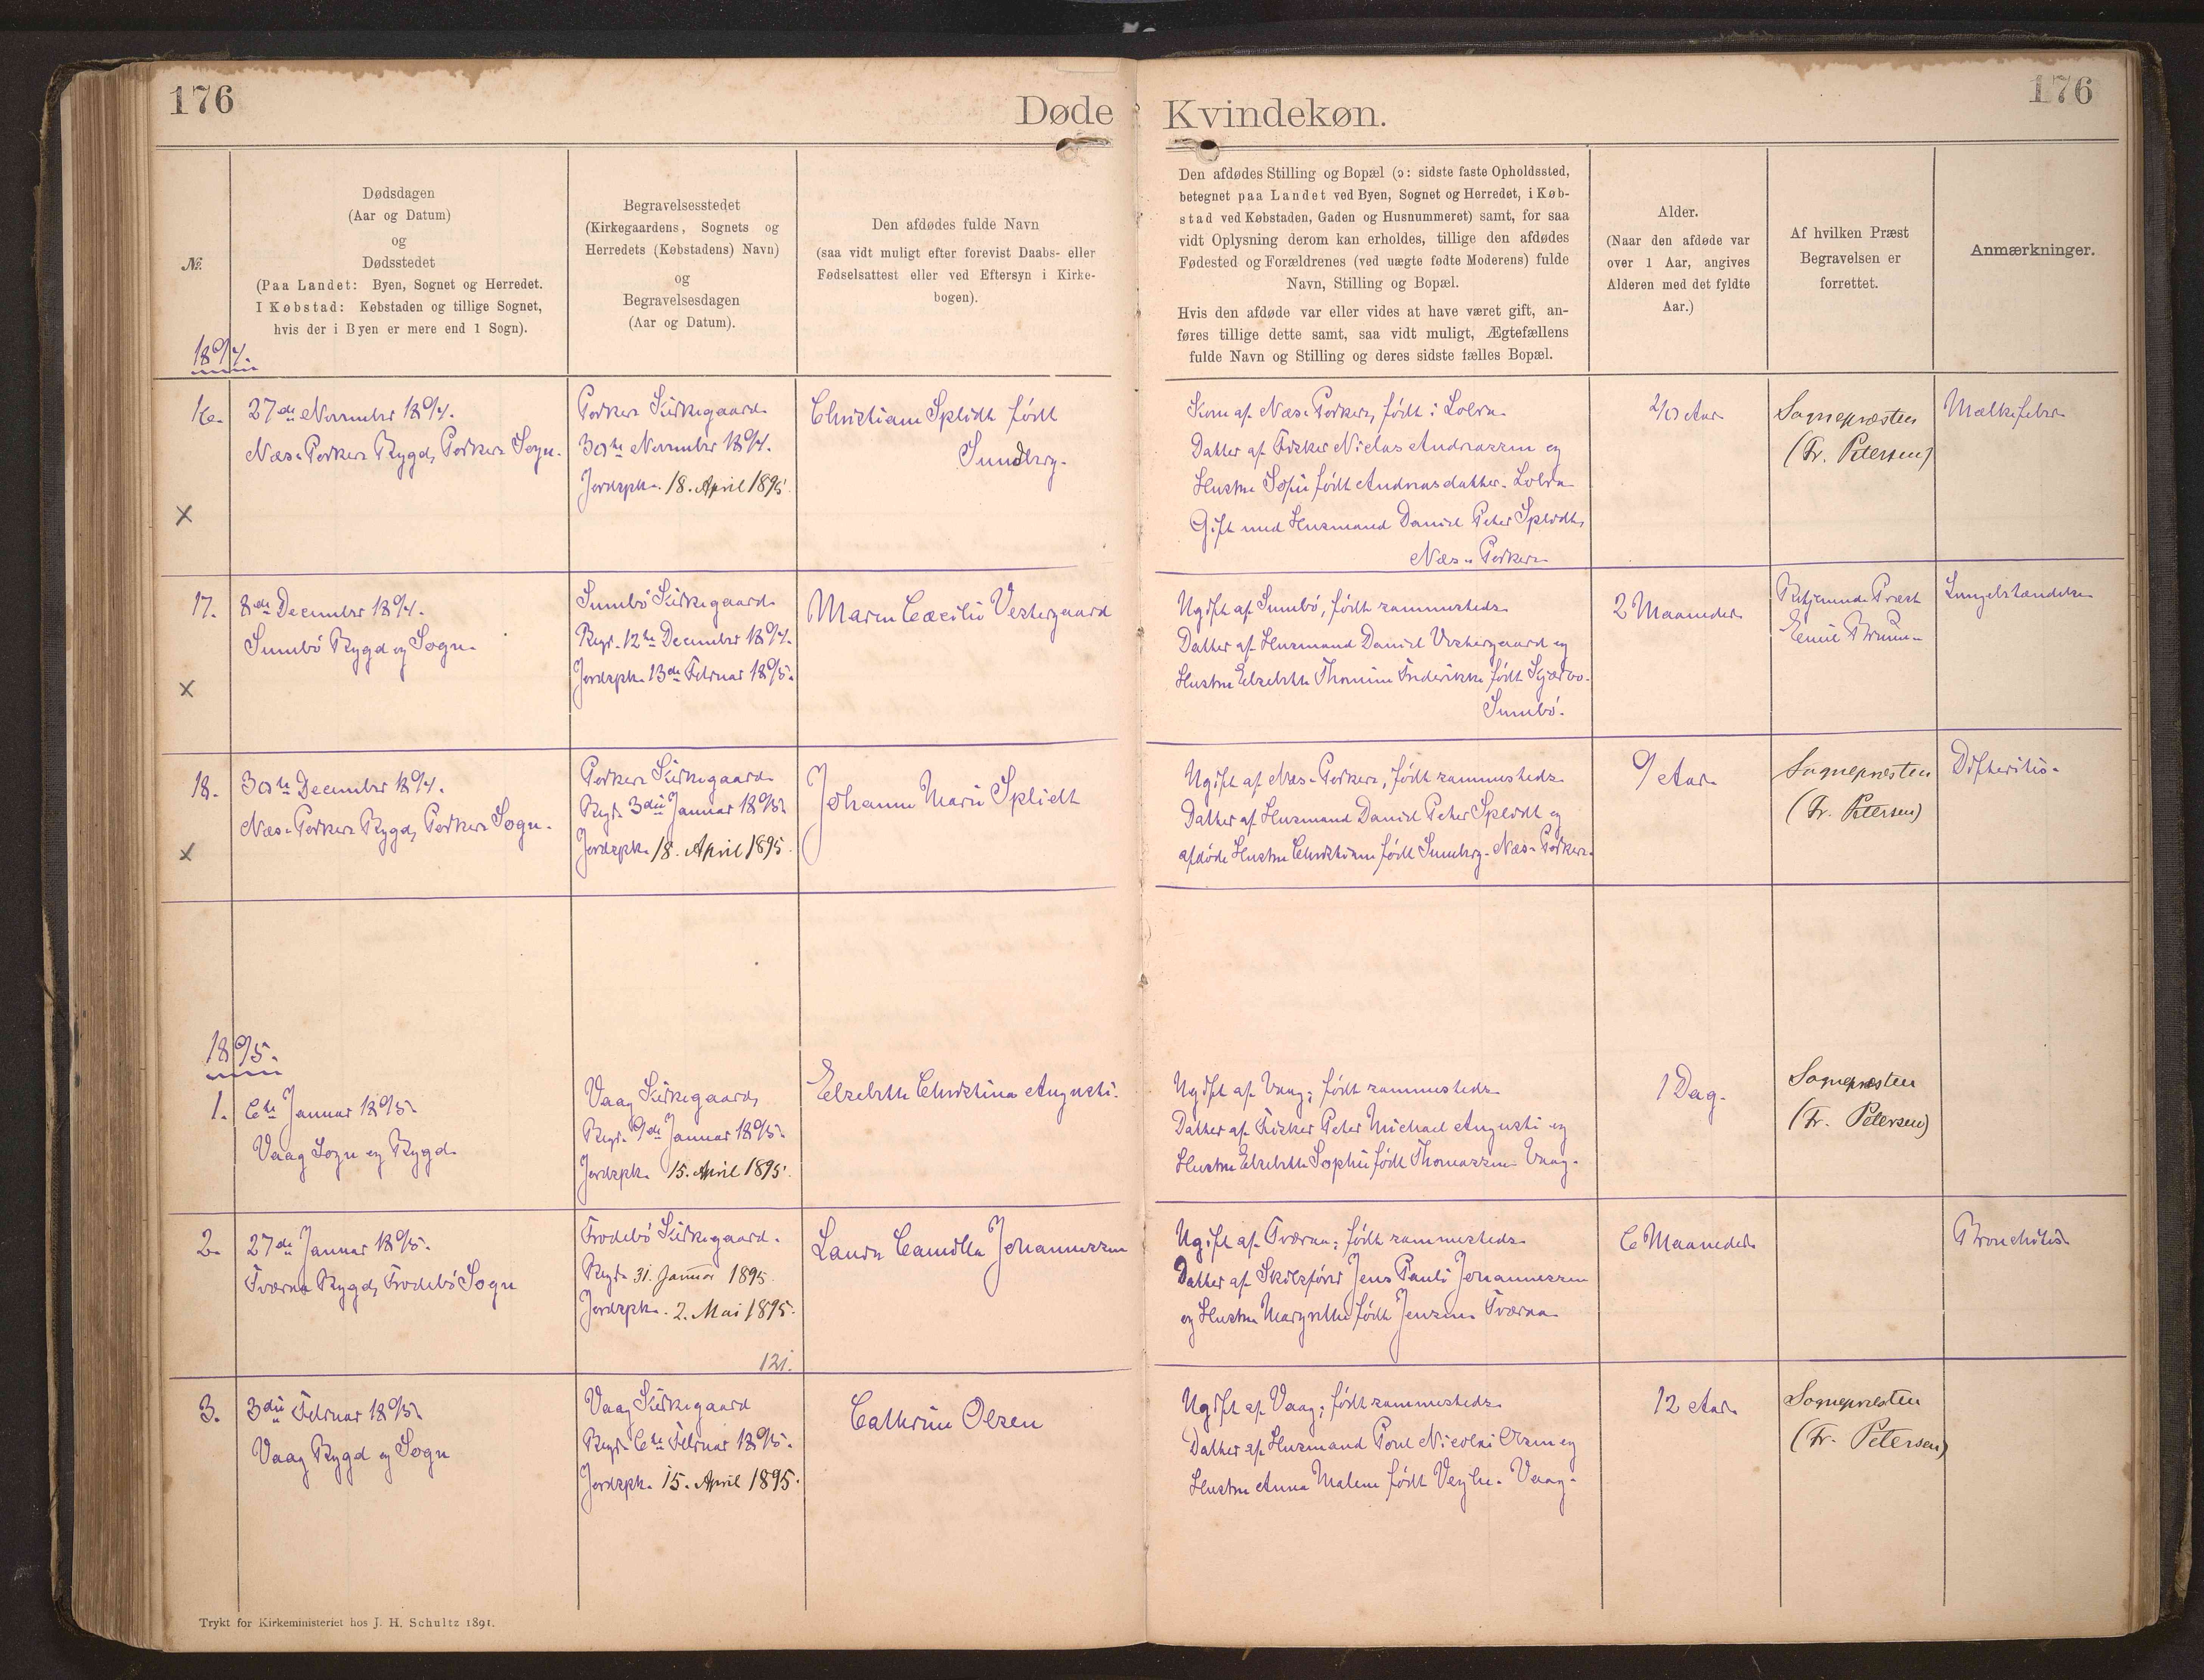 176
Døde
Kvindekøn.
176
№
Dødsdagen
(Aar og Datum)
og
Dødsstedet
(Paa Landet: Byen, Sognet og Herredet.
I Købstad: Købstaden og tillige Sognet,
hvis der i Byen er mere end 1 Sogn).
Begravelsesstedet
(Kirkegaardens, Sognets og
Herredets (Købstadens) Navn)
og
Begravelsesdagen
(Aar og Datum).
Den afdødes fulde Navn
(saa vidt muligt efter forevist Daabs- eller
Fødselsattest eller ved Eftersyn i Kirke-
bogen).
Den afdødes Stilling og Bopæl (ɔ: sidste faste Opholdssted,
betegnet paa Landet ved Byen, Sognet og Herredet, i Køb-
stad ved Købstaden, Gaden og Husnummeret) samt, for saa
vidt Oplysning derom kan erholdes, tillige den afdødes
Fødested og Forældrenes (ved uægte fødte Moderens) fulde
Navn, Stilling og Bopæl.
Hvis den afdøde var eller vides at have været gift, an-
føres tillige dette samt, saa vidt muligt, Ægtefællens
fulde Navn og Stilling og deres sidste fælles Bopæl.
Alder.
(Naar den afdøde var
over 1 Aar, angives
Alderen med det fyldte
Aar.)
Af hvilken Præst
Begravelsen er
forrettet.
Anmærkninger.
1894.
16.
27de November 1894.
Næs. Porkere Bygd, Porkere Sogn.
×
Porkere Kirkegaard.
30te November 1894.
Jordspk. 18. April 1895.
Christiane Splidt født
Sundberg.
Kone af Næs. Porkere, født i Lobra
Datter af Fisker Niclas Andreassen og
Hustru Sofie født Andreasdatter. Lobra
Gift med Husmand Daniel Peter Splidt,
Næs. Porkere
Aar
Sognepræsten
(Fr. Petersen)
Mælkefeber
17.
8de December 1894.
Sumbø Bygd og Sogn.
×
Sumbø Kirkegaard.
Begr. 12te December 1894.
Jordspk. 13de Februar 1895.
Maren Cæcilie Vestergaard
Ugift af Sumbø, født sammesteds
Datter af Husmand Daniel Vestergaard og
Hustru Elsebeth Thomine Frederikke født Kjærbo.
Sumbø.
2 Maaneder
Betjenende Præst
Emil Bruun
Lungebetændelse
18.
30te December 1894.
Næs. Porkere Bygd, Porkere Sogn.
×
Porkere Kirkegaard
Begr. 3die Januar 1895.
Jordspk. 18. April 1895.
Johanne Marie Splidt
Ugift af Næs. Porkere, født sammesteds
Datter af Husmand Daniel Peter Splidt og
afdøde Hustru Christiane født Sundberg. Næs. Porkere.
9 Aar
Sognepræsten
(Fr. Petersen)
Difteritis.
1895.
1.
6te Januar 1895.
Vaag Sogn og Bygd.
Vaag Kirkegaard,
Begr. 9de Januar 1895.
Jordspk. 15. April 1895.
Elsebeth Christina Augusti.
Ugift af Vaag; født sammesteds
Datter af Fisker Peter Michael Augusti og
Hustru Elsebeth Sophie født Thomassen. Vaag.
1 Dag.
Sognepræsten
(Fr. Petersen)
2.
27de Januar 1895.
Tværaa Bygd, Frodebø Sogn
Frodebø Kirkegaard.
Begr. 31. Januar 1895.
Jordspk. 2. Mai 1895.
121.
Laura Camilla Johannessen
Ugift af Tværaa; født sammesteds
Datter af Skibsfører Jens Pauli Johannessen
og Hustru Margrethe født Jensen. Tværaa
6 Maaneder
Bronchitis
3.
3die Februar 1895.
Vaag Bygd og Sogn
Vaag Kirkegaard
Begr. 6te Februar 1895.
Jordspk. 15. April 1895.
Cathrine Olsen
Ugift af Vaag; født sammesteds
Datter af Husmand Poul Nicolai Olsen og
Hustru Anna Malene født Veyhe. Vaag.
12 Aar
Sognepræsten
(Fr. Petersen)
Trykt for Kirkeministeriet hos J. H. Schultz 1891.